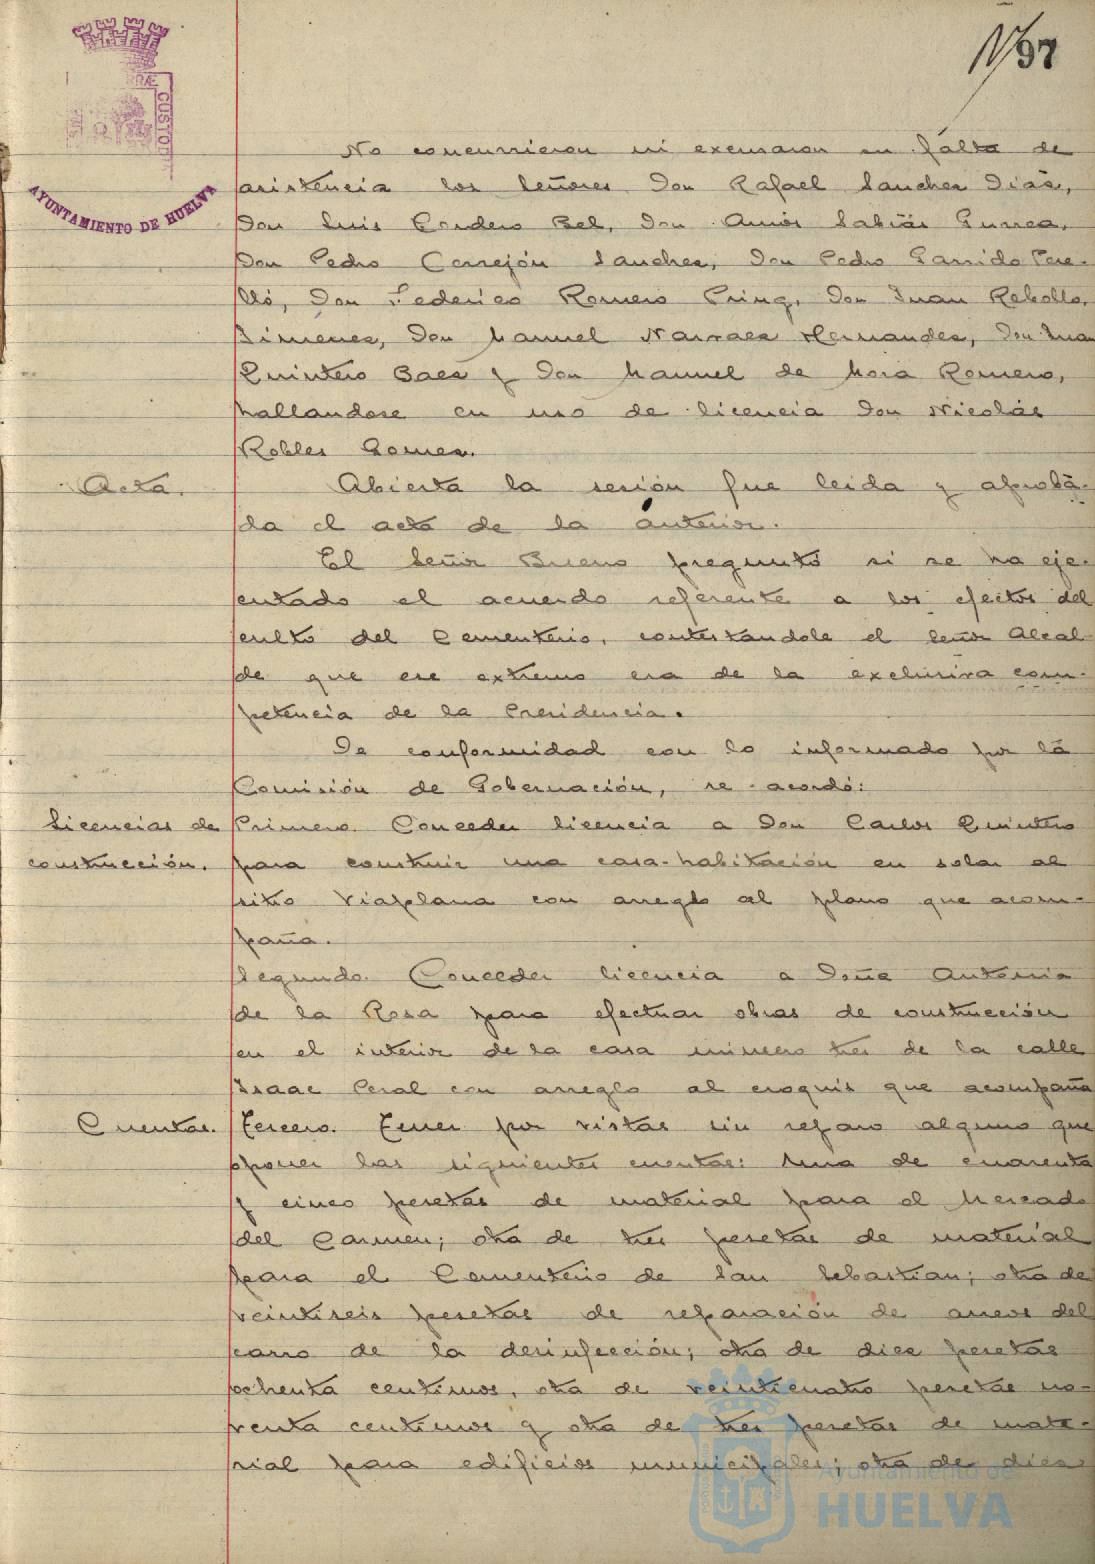 97
RÆ CUSTO
AYUNTAMIENTO DE HUELVA
No concurrieron ni excusaron su falta de
asistencia los Señores Don Rafael Sanchez Dias,
Don Luis Cordero Bel, Don Amós Sabrás Gurrea,
Don Pedro Cerrejón Sanchez, Don Pedro Garrido Pere-
lló, Don Federico Romero Pring, Don Juan Rebollo
Jimenez, Don Manuel Narvaez Hernandez, Don Juan
Quintero Baez y Don Manuel de Mora Romero,
hallandose en uso de licencia Don Nicolás
Robles Gomez.
Acta.
Abierta la sesión fue leida y aproba-
da el acta de la anterior.
El Señor Bueno preguntó si se ha eje-
cutado el acuerdo referente a los efectos del
culto del Cementerio, contestandole el Señor Alcal-
de que ese extremo era de la exclusiva com-
petencia de la Presidencia.
De conformidad con lo informado por la
Comisión de Gobernación, se acordó:
Licencias de
construcción.
Primero. Conceder licencia a Don Carlos Quintero
para construir una casa-habitación en solar al
sitio Viaplana con arreglo al plano que acom-
paña.
Segundo. Conceder licencia a Doña Antonia
de la Rosa para efectuar obras de construcción
en el interior de la casa número tres de la calle
Isaac Peral con arreglo al croquis que acompaña
Cuentas.
Tercero. Tener por vistas sin reparo alguno que
oponer las siguientes cuentas: Una de cuarenta
y cinco pesetas de material para el Mercado
del Carmen; otra de tres pesetas de material
para el Cementerio de San Sebastian; otra de
veintiseis pesetas de reparación de aneos del
carro de la desinfección; otra de diez pesetas
ochenta centimos, otra de veinticuatro pesetas no-
venta centimos y otra de tres pesetas de mate-
rial para edificios municipales; otra de diez
Ayuntamiento de
HUELVA